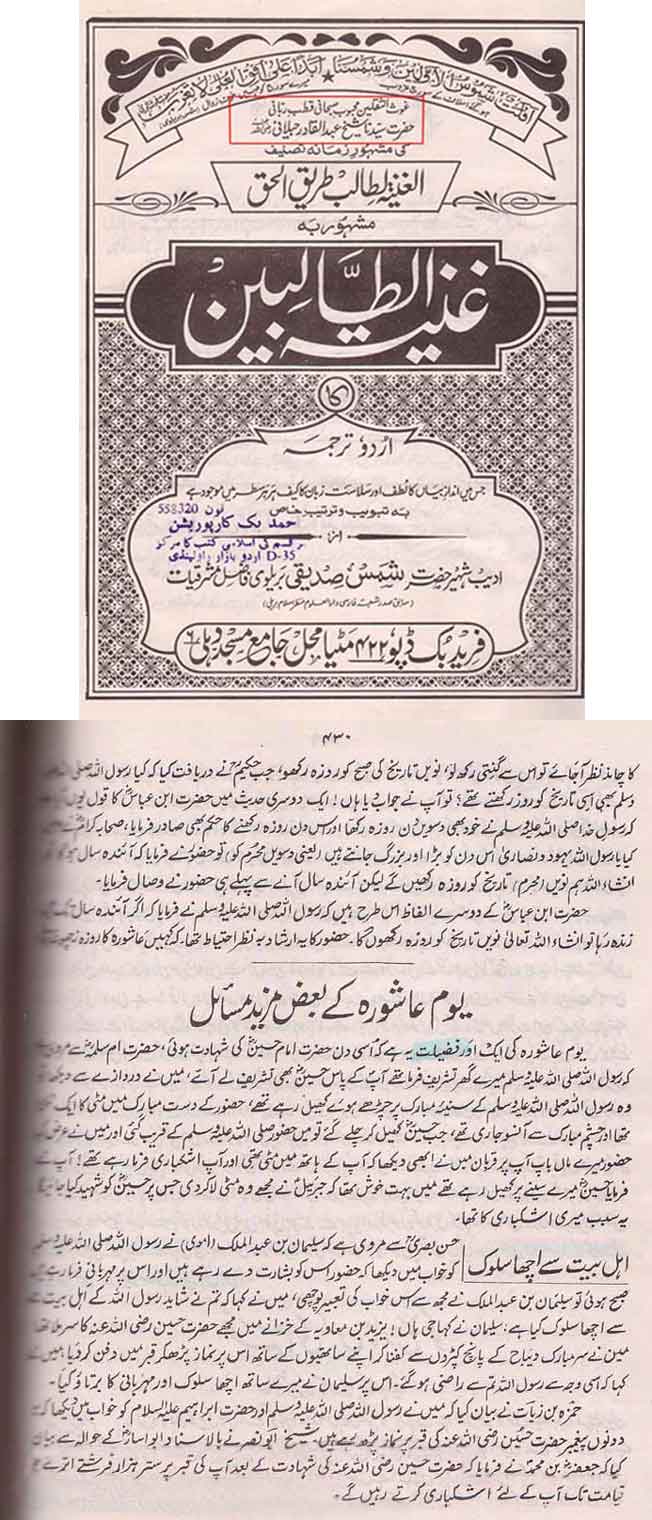 غوث الثقلین محبوب سبحانی قطب ربانی
حضرت سیدنا شیخ عبدالقادر جیلانی
کی مشہور زمانہ تصنیف
الغنیۃ لطالب طریق الحق
مشہور بہ
غنیۃ الطالبین
کا
اردو ترجمہ
جس میں انداز بیاں کا لطف اور سلاست زبان کا کیف ہر ہر سطر میں موجود ہے
بہ تبویب و ترتیب خاص
فون 558320
احمد بک کارپوریشن
از
اسلامی کتب کا مرکز
D-35 اردو بازار راولپنڈی
ادیب شہیر حضرت شمس صدیقی بریلوی فاضل مشرقیات
فرید بُک ڈپو ۴۲۲ مٹیا محل جامع مسجد دہلی ۶
۴۳۰
کا چاند نظر آجائے تو اس سے گنتی رکھ لو، نویں تاریخ کی صبح کو روزہ رکھو، جب حکیم نے دریافت کیا کہ کیا رسول اللہ صلی اللہ
وسلم بھی اسی تاریخ کو روزہ رکھتے تھے؟ تو آپ نے جواب دیا ہاں! ایک دوسری حدیث میں حضرت ابن عباسؓ کا قول
کہ رسول خدا صلی اللہ علیہ وسلم نے خود بھی دسویں دن روزہ رکھا اور اس دن روزہ رکھنے کا حکم بھی صادر فرمایا، صحابہ کرام نے
کیا یا رسول اللہ یہود و نصاریٰ اس دن کو بڑا اور بزرگ جانتے ہیں (یعنی دسویں محرم کو) تو حضور نے فرمایا کہ آئندہ سال
انشاء اللہ ہم نویں (محرم) تاریخ کو روزہ رکھیں گے لیکن آئندہ سال آنے سے پہلے ہی حضور نے وصال فرمایا۔
حضرت ابن عباسؓ کے دوسرے الفاظ اس طرح ہیں کہ رسول اللہ صلی اللہ علیہ وسلم نے فرمایا کہ اگر آئندہ سال تک میں
زندہ رہا تو انشاء اللہ تعالیٰ نویں تاریخ کو روزہ رکھوں گا۔ حضور کا یہ ارشاد بہ نظر احتیاط تھا۔ کہ کہیں عاشورہ کا روزہ
یوم عاشورہ کے بعض مزید مسائل
یوم عاشورہ کی ایک اور فضیلت یہ ہے کہ اسی دن حضرت امام حسینؓ کی شہادت ہوئی، حضرت ام سلمہؓ سے مروی
کہ رسول اللہ صلی اللہ علیہ وسلم میرے گھر تشریف فرما تھے آپ کے پاس حسینؓ بھی تشریف لے آئے، میں نے دروازے سے دیکھا
وہ رسول اللہ صلی اللہ علیہ وسلم کے سینۂ مبارک پر چڑھے ہوئے کھیل رہے تھے، حضور کے دست مبارک میں مٹی کا ایک
تھا اور چشم مبارک سے آنسو جاری تھے، جب حسینؓ کھیل کر چلے گئے تو میں حضور صلی اللہ علیہ وسلم کے قریب گئی اور میں نے عرض
حضور میرے ماں باپ آپ پر قربان میں نے ابھی دیکھا کہ آپ کے ہاتھ میں مٹی تھی اور آپ اشکباری فرما رہے تھے! آپ نے
فرمایا حسینؓ میرے سینے پر کھیل رہے تھے میں بہت خوش تھا کہ جبرئیل نے مجھے وہ مٹی لا کر دی جس پر حسینؓ کو شہید کیا جائے گا
یہ سبب میری اشکباری کا تھا۔
اہل بیت سے اچھا سلوک
حسن بصریؒ سے مروی ہے کہ سلیمان بن عبدالملک (اموی) نے رسول اللہ صلی اللہ علیہ وسلم
کو خواب میں دیکھا کہ حضور اس کو بشارت دے رہے ہیں اور اس پر مہربانی فرما رہے ہیں
صبح ہوئی تو سلیمان بن عبدالملک نے مجھ سے اس خواب کی تعبیر پوچھی، میں نے کہا کہ تم نے شاید رسول اللہ کے اہل بیت
سے اچھا سلوک کیا ہے، سلیمان نے کہا جی ہاں! یزید بن معاویہ کے خزانے میں مجھے حضرت حسین رضی اللہ عنہ کا سر ملا تھا
میں نے سر مبارک دیباج کے پانچ کپڑوں سے کفنا کر اپنے ساتھیوں کے ساتھ اس پر نماز پڑھ کر قبر میں دفن کر دیا، میں نے
کہا کہ اسی وجہ سے رسول اللہ تم سے راضی ہو گئے۔ اس پر سلیمان نے میرے ساتھ اچھا سلوک اور مہربانی کا برتاؤ کیا۔
حمزہ بن زیات نے بیان کیا کہ میں نے رسول اللہ صلی اللہ علیہ وسلم اور حضرت ابراہیم علیہ السلام کو خواب میں دیکھا کہ
دونوں پیغمبر حضرت حسین رضی اللہ عنہ کی قبر پر نماز پڑھ رہے ہیں۔ شیخ ابو نصر نے بالاسناد ابو اسامہ کے حوالہ سے بیان
کیا کہ جعفر بن محمد نے فرمایا کہ حضرت حسین رضی اللہ عنہ کی شہادت کے بعد آپ کی قبر پر ستر ہزار فرشتے اترے جو
قیامت تک آپ کے لئے اشکباری کرتے رہیں گے۔